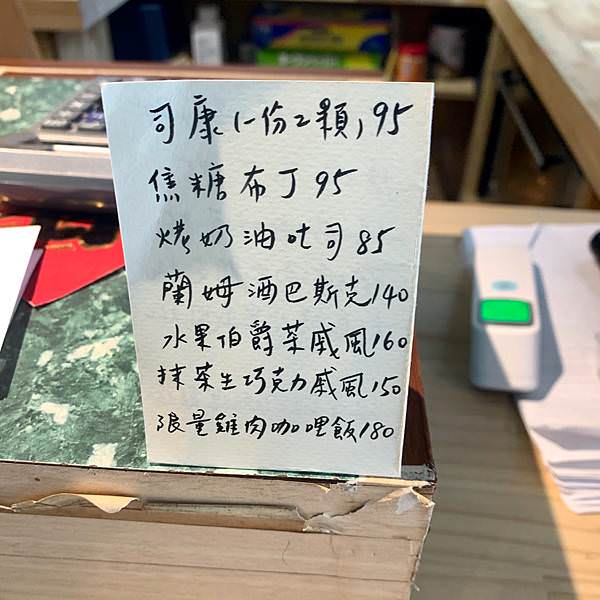 司康(一份2顆)95
焦糖布丁95
烤奶油吐司85
蘭姆酒巴斯克140
水果伯爵茶戚風160
抹茶生巧克力戚風150
限量雞肉咖哩飯180